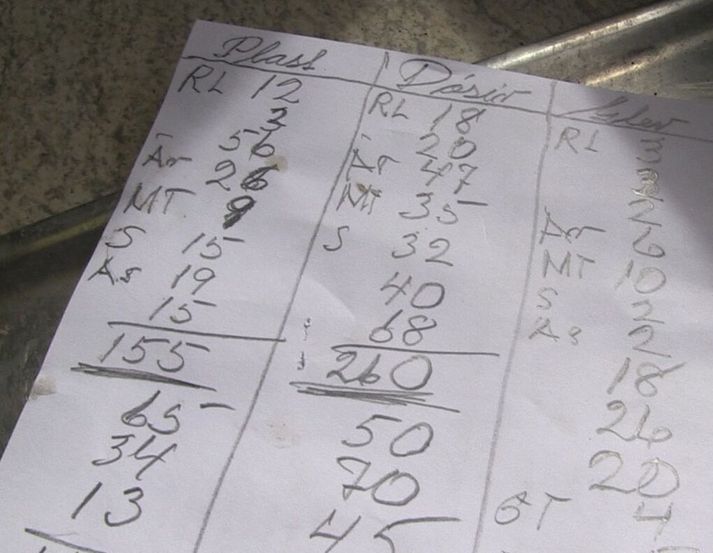 Plast
RL 12
3
56
Ár 26
MT 9
S 15
As 19
15
155
65
34
13
Dósir
RL 18
20
Ár 47
MT 35
S 32
40
68
260
50
70
45
RL 3
2
Ár 6
MT 10
S 2
As 2
18
26
20
GT 4